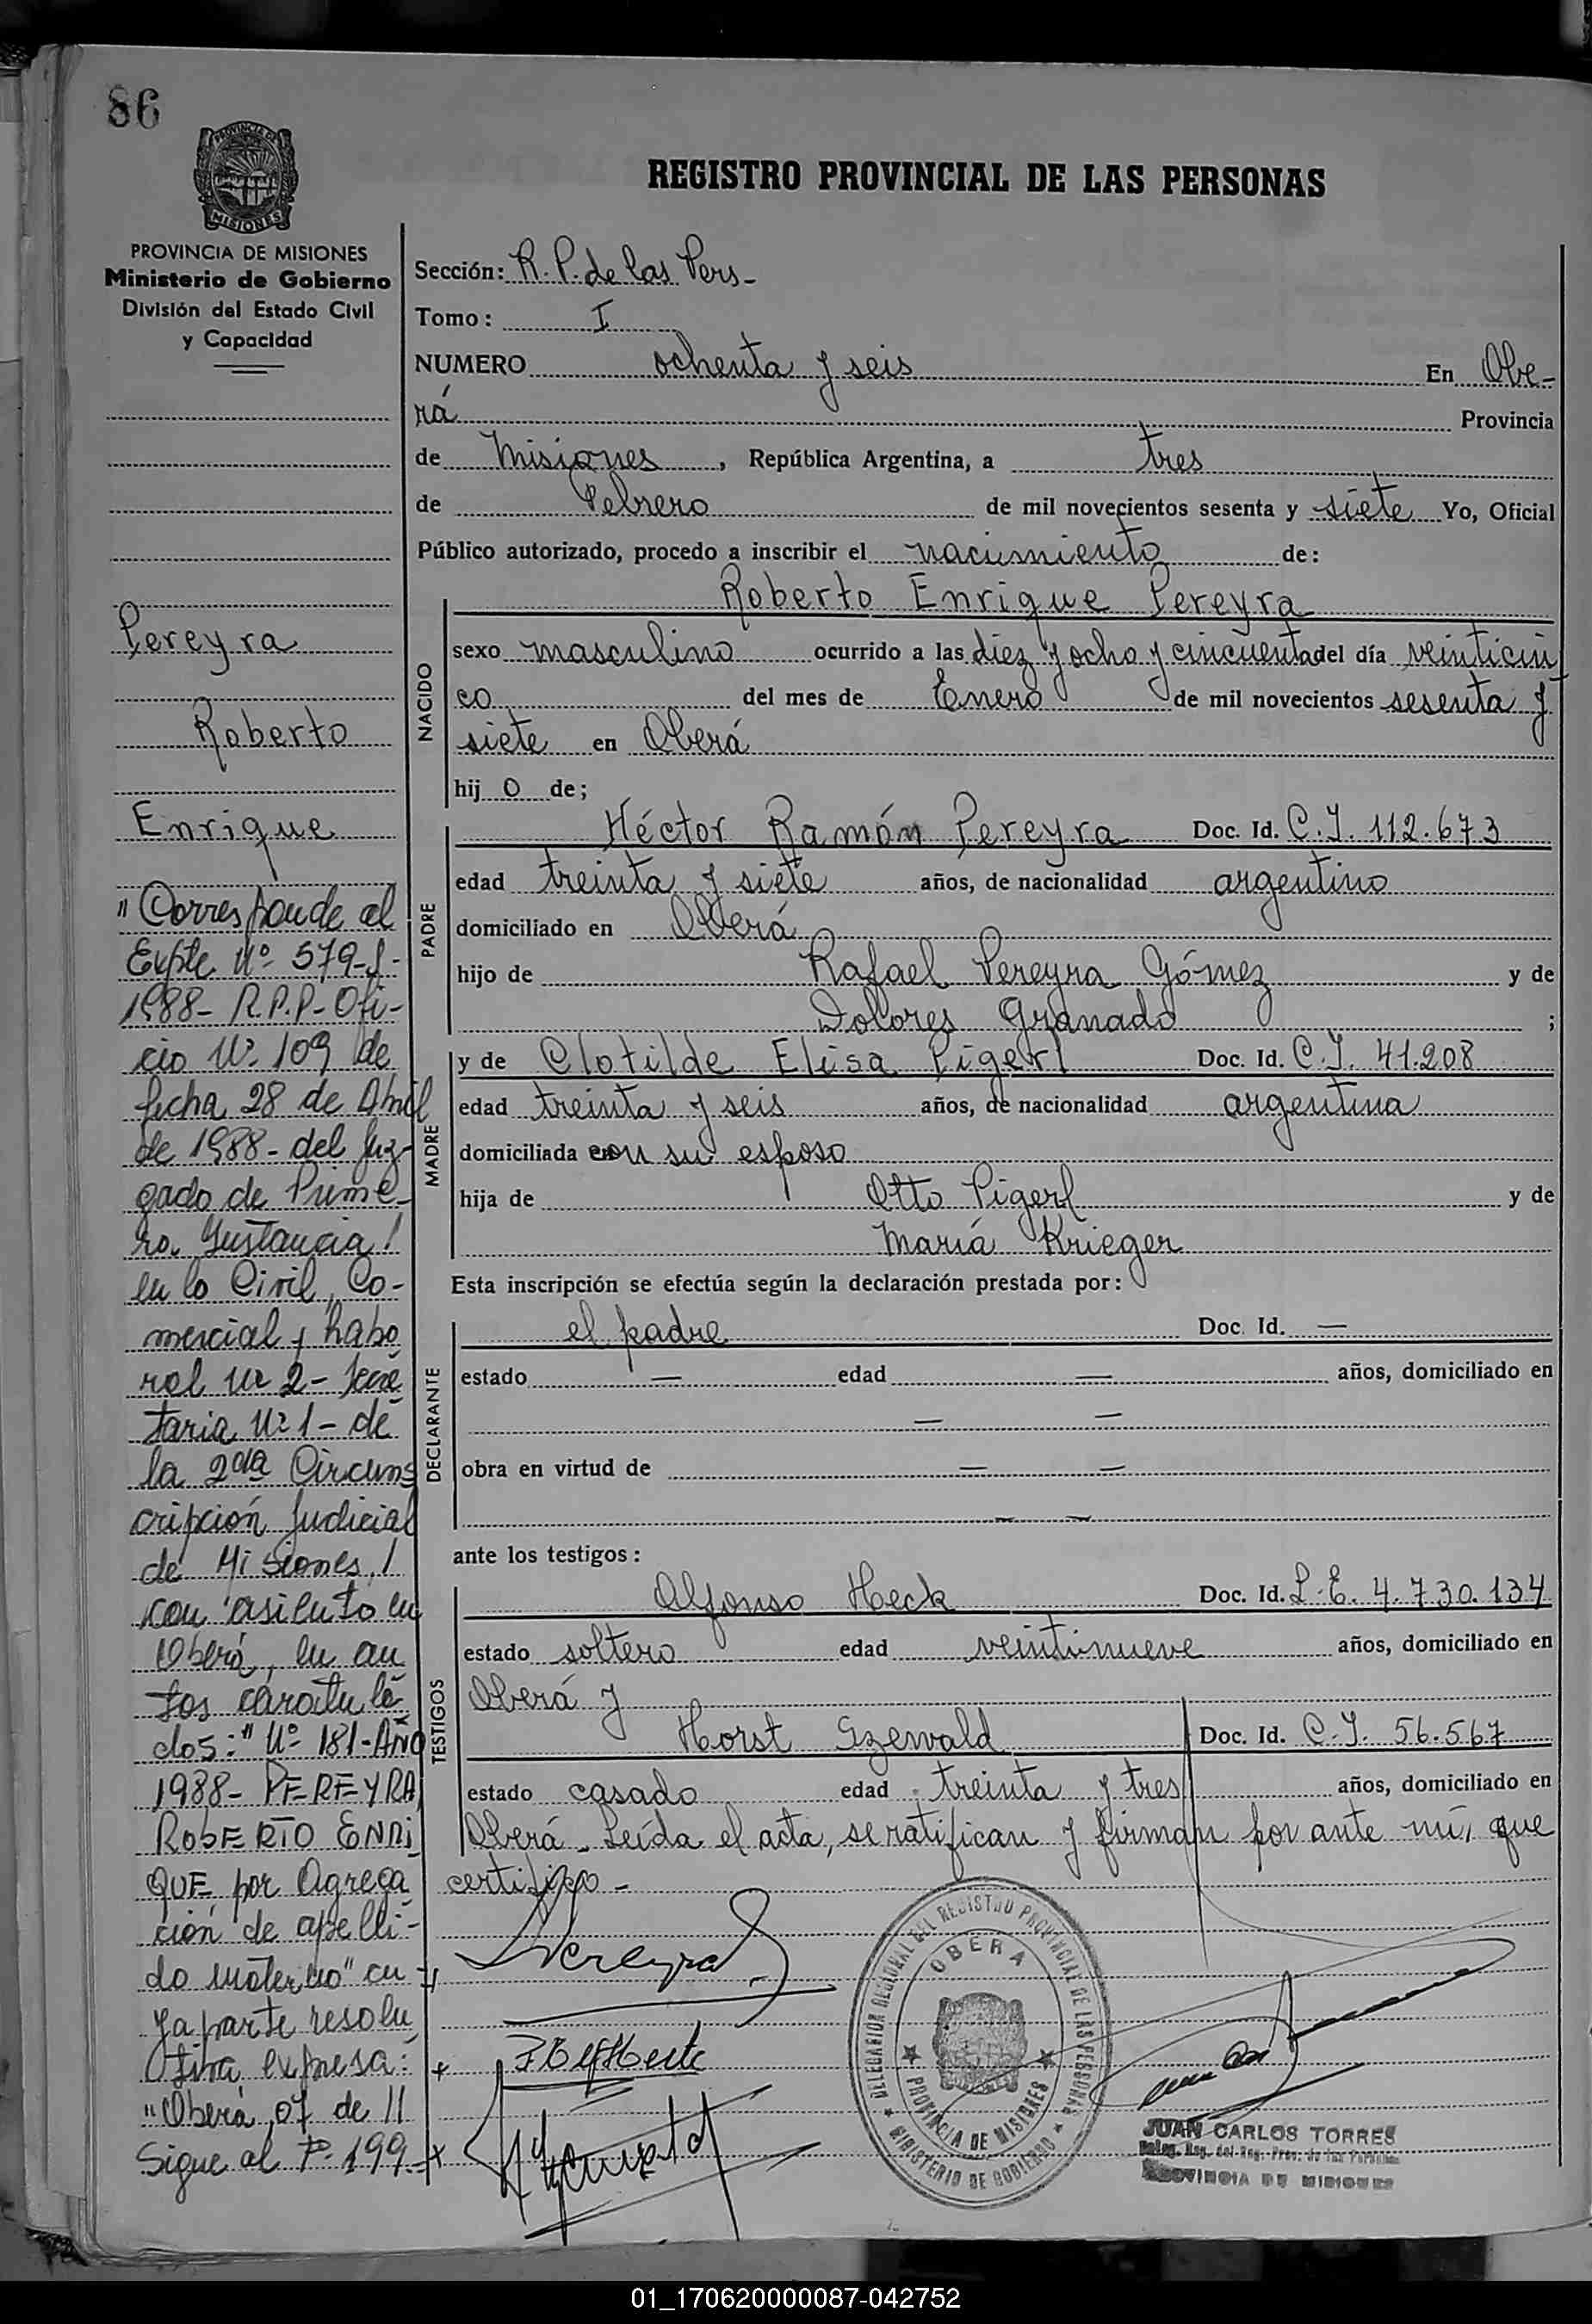 86
PROVINCIA DE MISIONES
PROVINCIA DE MISIONES
Ministerio de Gobierno
División del Estado Civil
y Capacidad
Pereyra
Roberto
Enrique
"Corresponde al
Expte. Nº 579-J-
1988- R.P.P- Ofi-
cio Nº 109 de
fecha 28 de Abril
de 1988- del Juz-
gado de Prime-
ra Instancia/
en lo Civil, Co-
mercial y Labo
ral Nº 2- Secre
taria Nº 1- de
la 2da Circuns
cripción Judicial
de Misiones, /
con asiento en
Oberá, en au
tos caratula
dos: "Nº 181-Año
1988- PEREYRA
ROBERTO ENRI
QUE por Agrega
ción de apelli-
do materno" cu
ya parte resolu
tiva expresa:
"Oberá, 07 de //
Sigue al Fº 199
REGISTRO PROVINCIAL DE LAS PERSONAS
Sección: R.P. de las Pers-
Tomo: I
NUMERO ochenta y seis En Obe-
rá Provincia
de Misiones, República Argentina, a tres
de Febrero de mil novecientos sesenta y siete Yo, Oficial
Público autorizado, procedo a inscribir el nacimiento de:
NACIDO
Roberto Enrique Pereyra
sexo masculino ocurrido a las diez y ocho y cincuenta del día veinticin
co del mes de Enero de mil novecientos sesenta y
siete en Oberá
hijo de;
PADRE
Héctor Ramón Pereyra Doc. Id. C.I. 112.673
edad treinta y siete años, de nacionalidad argentino
domiciliado en Oberá
hijo de Rafael Pereyra Gómez y de
Dolores Granado ;
MADRE
y de Clotilde Elisa Pigerl Doc. Id. C.I. 41.208
edad treinta y seis años, de nacionalidad argentina
domiciliada con su esposo
hija de Otto Pigerl y de
María Krieger
Esta inscripción se efectúa según la declaración prestada por:
DECLARANTE
el padre Doc. Id. —
estado — edad — años, domiciliado en
— —
obra en virtud de — —
— —
ante los testigos:
TESTIGOS
Alfonso Heck Doc. Id. L.E. 4.730.134
estado soltero edad veintinueve años, domiciliado en
Oberá y
Horst Doc. Id. C.I. 56.567
estado casado edad treinta y tres años, domiciliado en
Oberá - Leída el acta, se ratifican y firman por ante mí, que
certifico -
Pereyra
DELEGACION REGIONAL DEL REGISTRO PROVINCIAL DE LAS PERSONAS
OBERA
PROVINCIA DE MISIONES
MINISTERIO DE GOBIERNO
JUAN CARLOS TORRES
Deleg. Reg. del Reg. Prov. de las Personas
PROVINCIA DE MISIONES
01_170620000087-042752